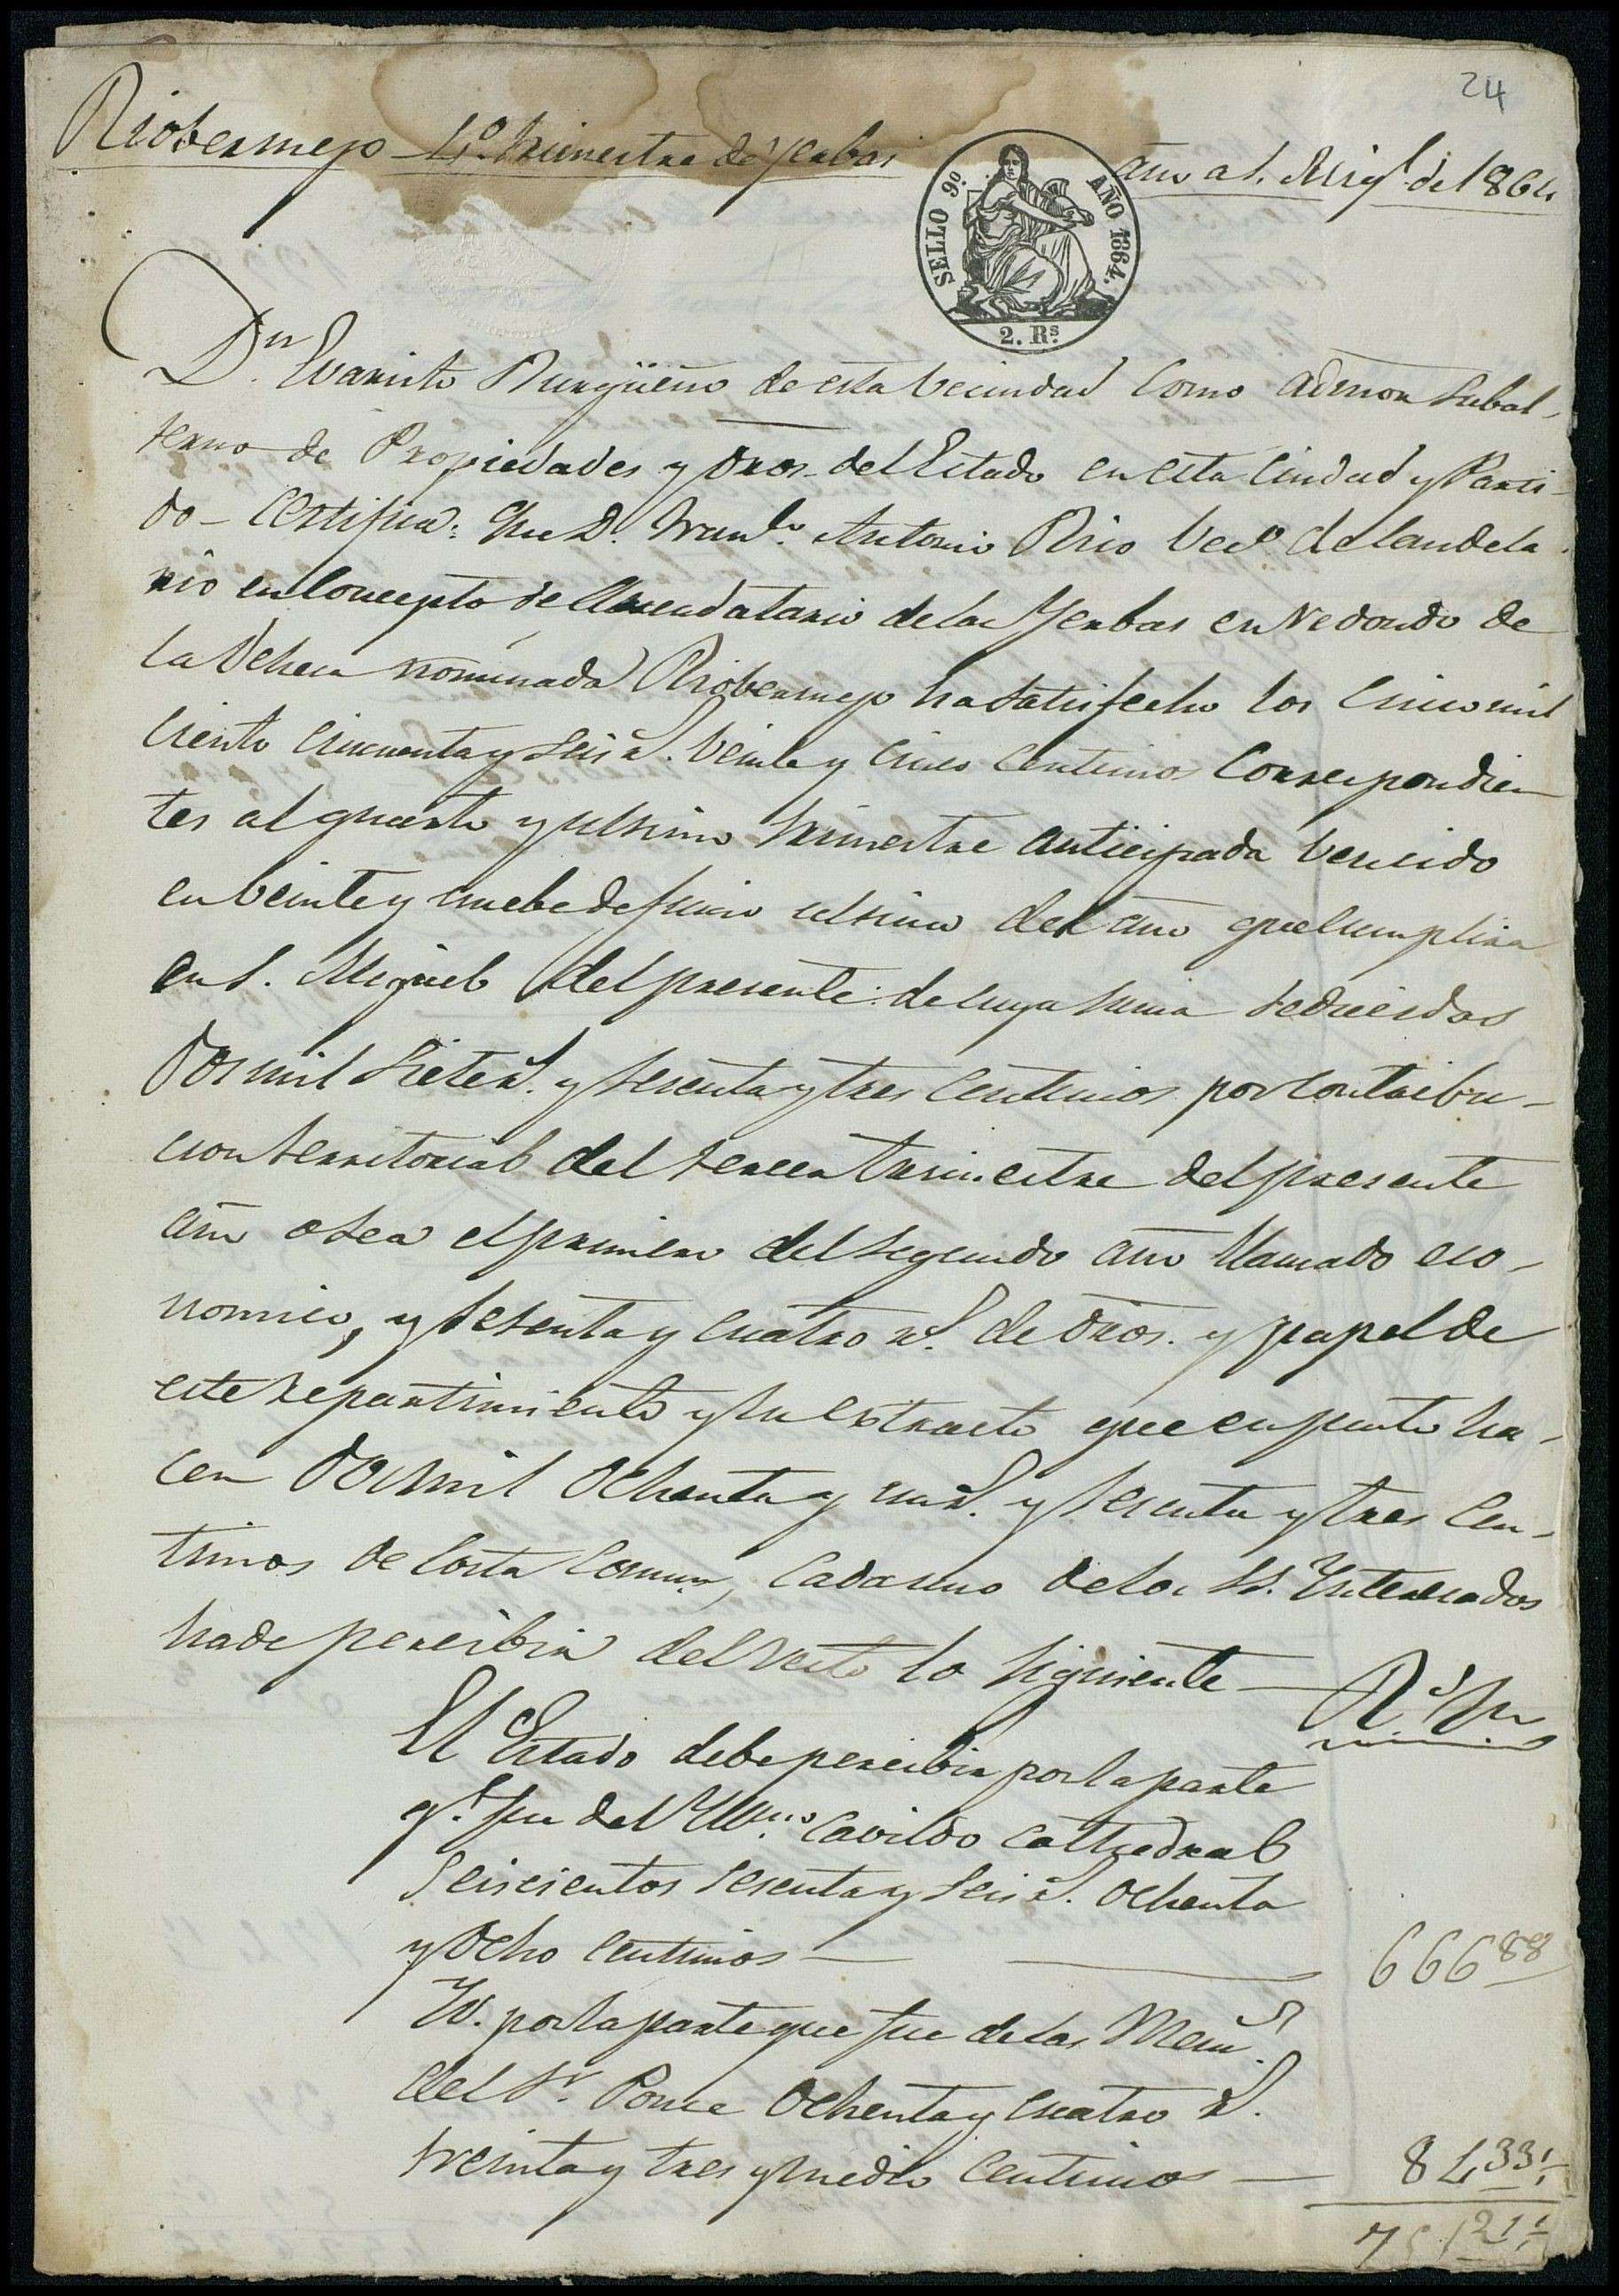 24
Riobermejo 4º trimestre de yerbas año a S. Migl. de 1864
SELLO 9º. AÑO 1864.
2. Rs.
Dn. Evaristo Burgüeño de esta becindad como admor subal-
terno de Propiedades y dros. del Estado en esta ciudad y Parti-
do - Certifica: Que D. Franco. Antonio Rico vecº. de Candela-
rio en concepto de Arrendatario de las Yerbas en redondo de
la Dehesa nominada Riobermejo ha satisfecho los cinco mil
ciento cincuenta y seis rs. veinte y cinco centimos correspondien-
tes al quarto y ultimo trimestre anticipada vencido
en beinte y nuebe de Junio ultimo del año que cumplira
en S. Miguel del presente: de cuya suma deducidos
dos mil siete rs. y sesenta y tres centimos por contribu-
cion territorial del tercer trimestre del presente
año o sea el primero del segundo año llamado eco-
nomico, y setenta y cuatro rs. de dros. y papel de
este repartimiento y su extracto que en junto ha-
cen dos mil ochenta y un rs. y sesenta y tres cen-
timos de costa comun, cada uno de los SS. Interesados
ha de percibir del resto lo siguiente
Rs. Vn.
El Estado debe percibir por la parte
q.e fue del Yllmo. Cavildo cathedral
seiscientos sesenta y seis rs. ochenta
y ocho centimos 666 88
Yd. por la parte que fue de las Mem.s
del Sr. Ponce ochenta y cuatro rs.
treinta y tres y medio centimos 84 33 ½
751 21 ½